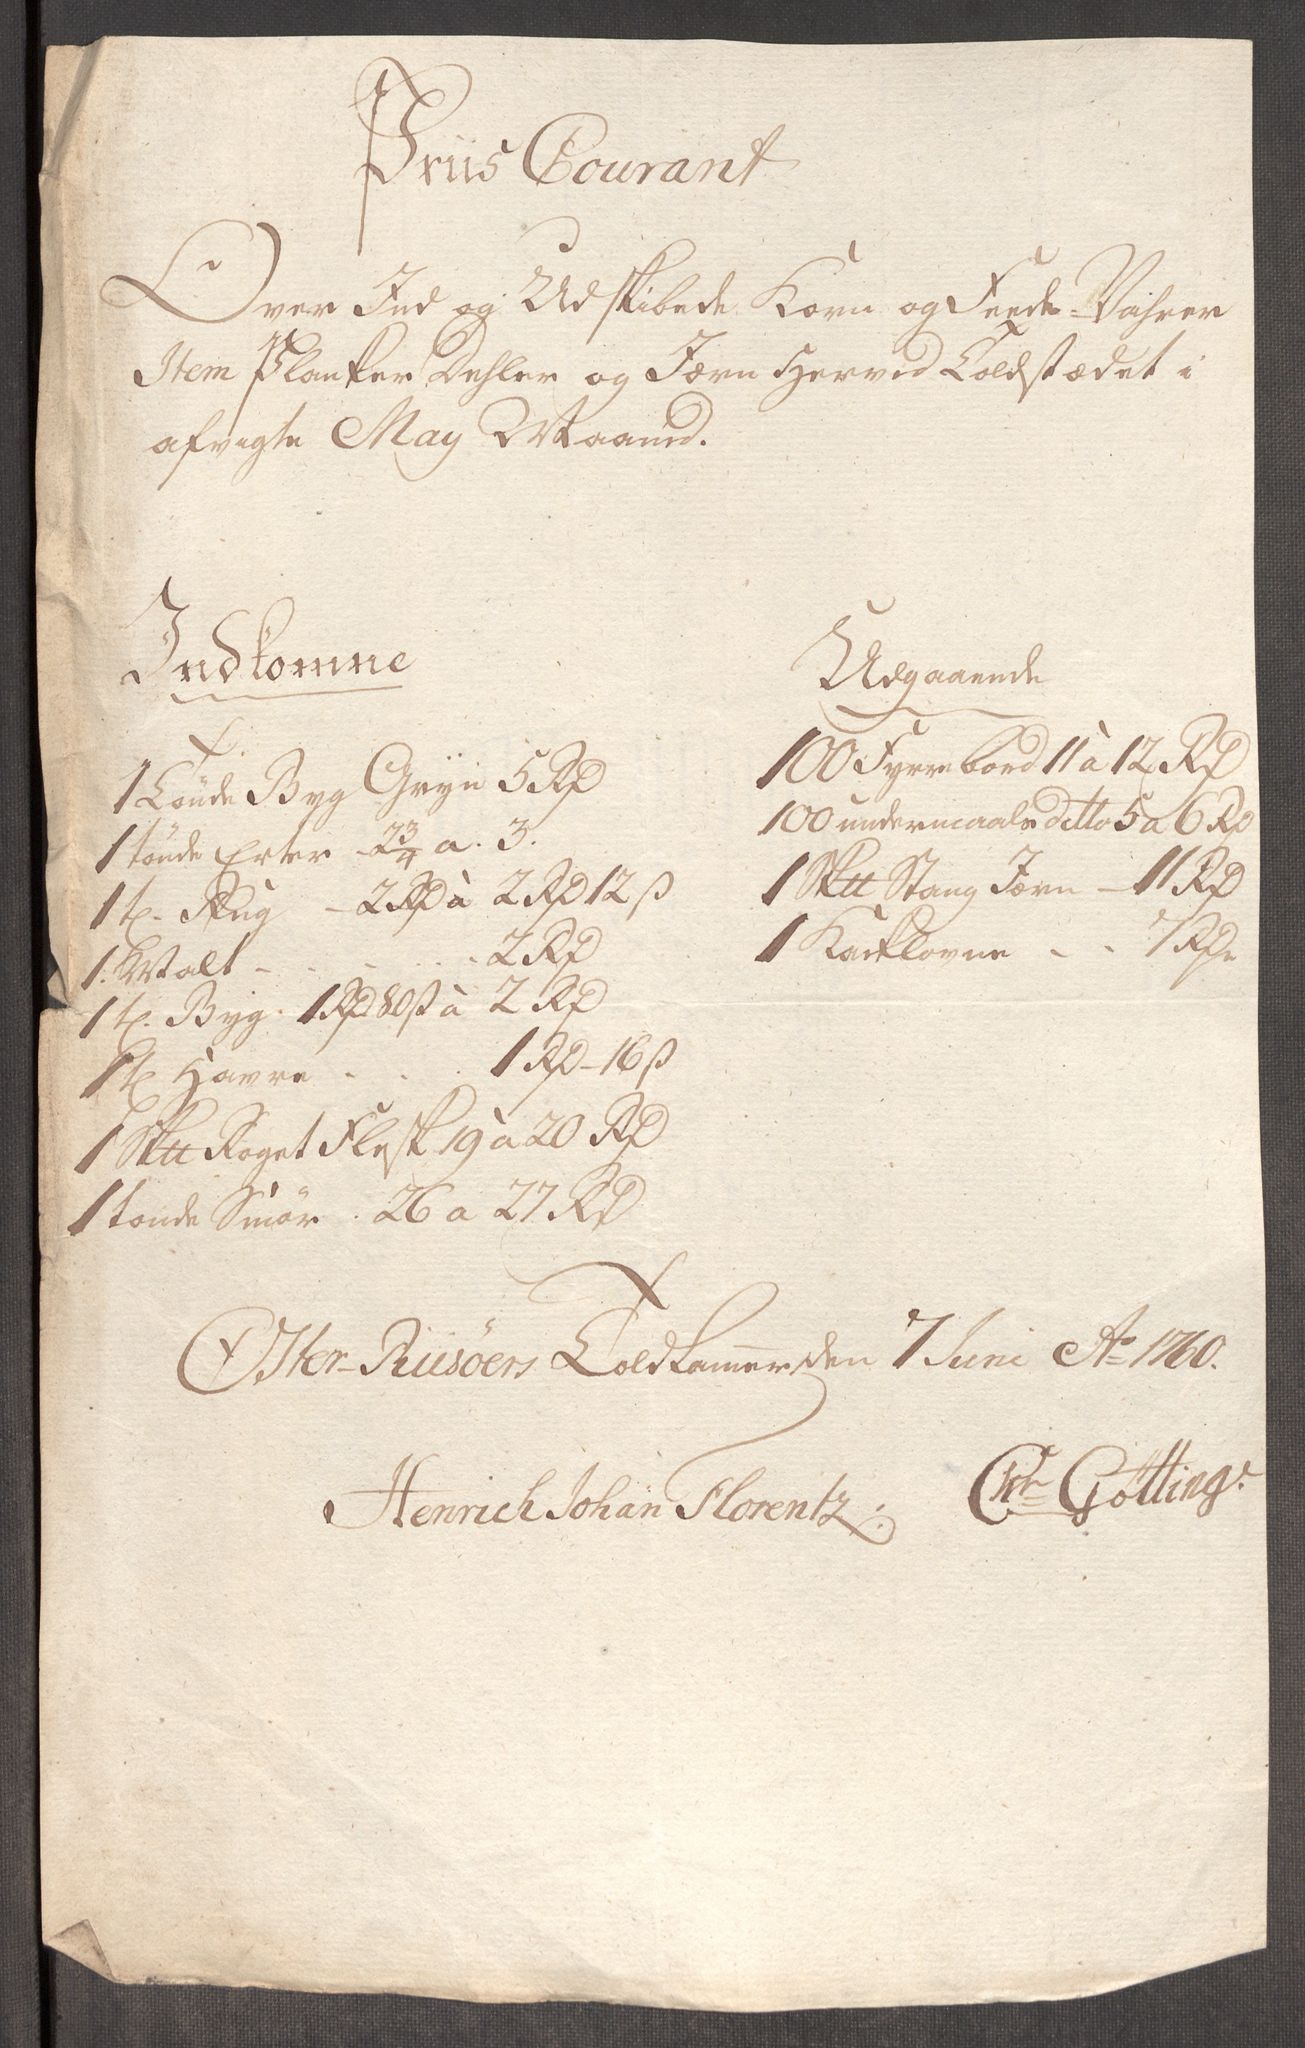 Priis Courant
Over Ind og Udskibede Korn og Feede-Vahrer
Item Planker Dehler og Jærn Herved Toldstædet i
afvigte May Maaned.
Indkomne
1 Tönde Byg Gryn 5 Rd
1 tönde Erter 2 3/4 a. 3.
1 t. Rug - 2 Rd à 2 Rd 12 ß
1. Malt - - - 2 Rd
1 t. Byg. 1 Rd 80 ß à 2 Rd
1 t. Havre - - - 1 Rd - 16 ß
1 Sktt Røget Flesk 19 à 20 Rd
1 tonde Smör. 26 a 27 Rd
Udgaaende
100 Fyrre bord 11 à 12 Rd
100 undermaals ditto 5 a 6 Rd
1 Sktt Stang Jærn - 11 Rd
1 Kackelovne - - 7 Rd
Öster-Riisöers Toldkammer den 7 Juni Ao 1760.
Henrich Johan Florentz
Chr Götting